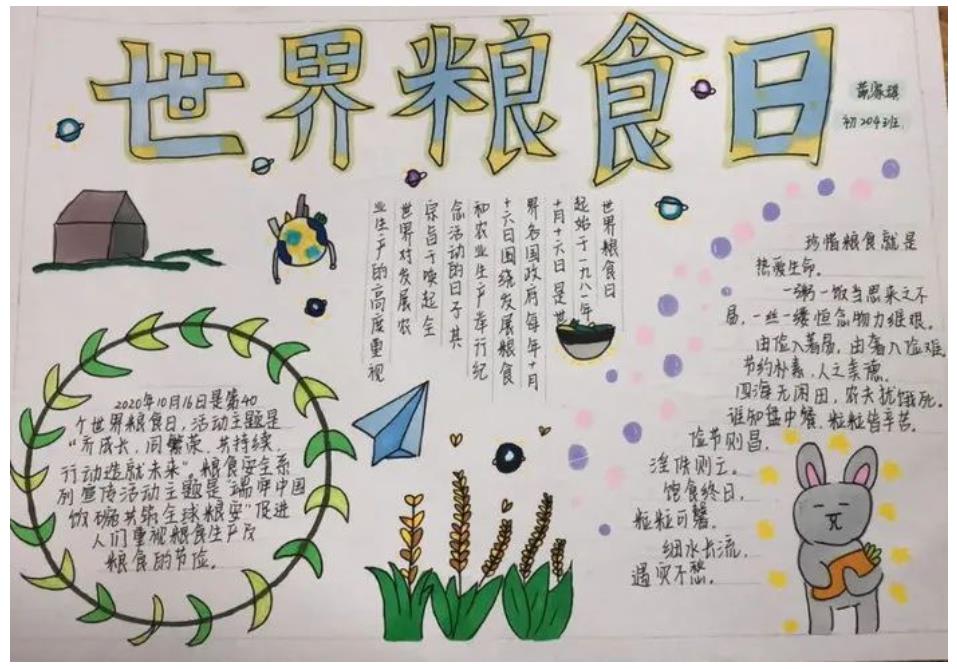 世界粮食日
初204班.
世界粮食日
起始于一九八一年
十月十六日是世
界各国政府每年十月
十六日围绕发展粮食
和农业生产举行纪
念活动的日子其
宗旨于唤起全
世界对发展农
业生产的高度重视
2020年10月16日是第40
个世界粮食日,活动主题是
“齐成长、同繁荣、共持续,
行动造就未来”粮食安全系
列宣传活动主题是“端牢中国
饭碗共筑全球粮安”促进
人们重视粮食生产及
粮食的节俭。
珍惜粮食就是
热爱生命。
一粥一饭当思来之不
易,一丝一缕恒念物力维艰。
由俭入奢易,由奢入俭难,
节约朴素,人之美德。
四海无闲田,农夫犹饿死。
谁知盘中餐,粒粒皆辛苦。
俭节则昌,
淫佚则亡。
饱食终日,
粒粒可馨。
细水长流,
遇灾不愁。